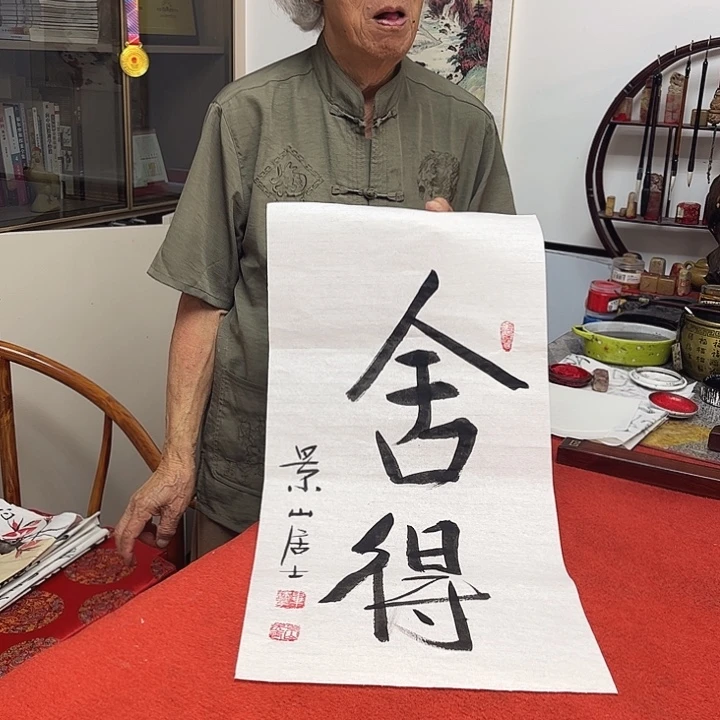 舍得
景山居士